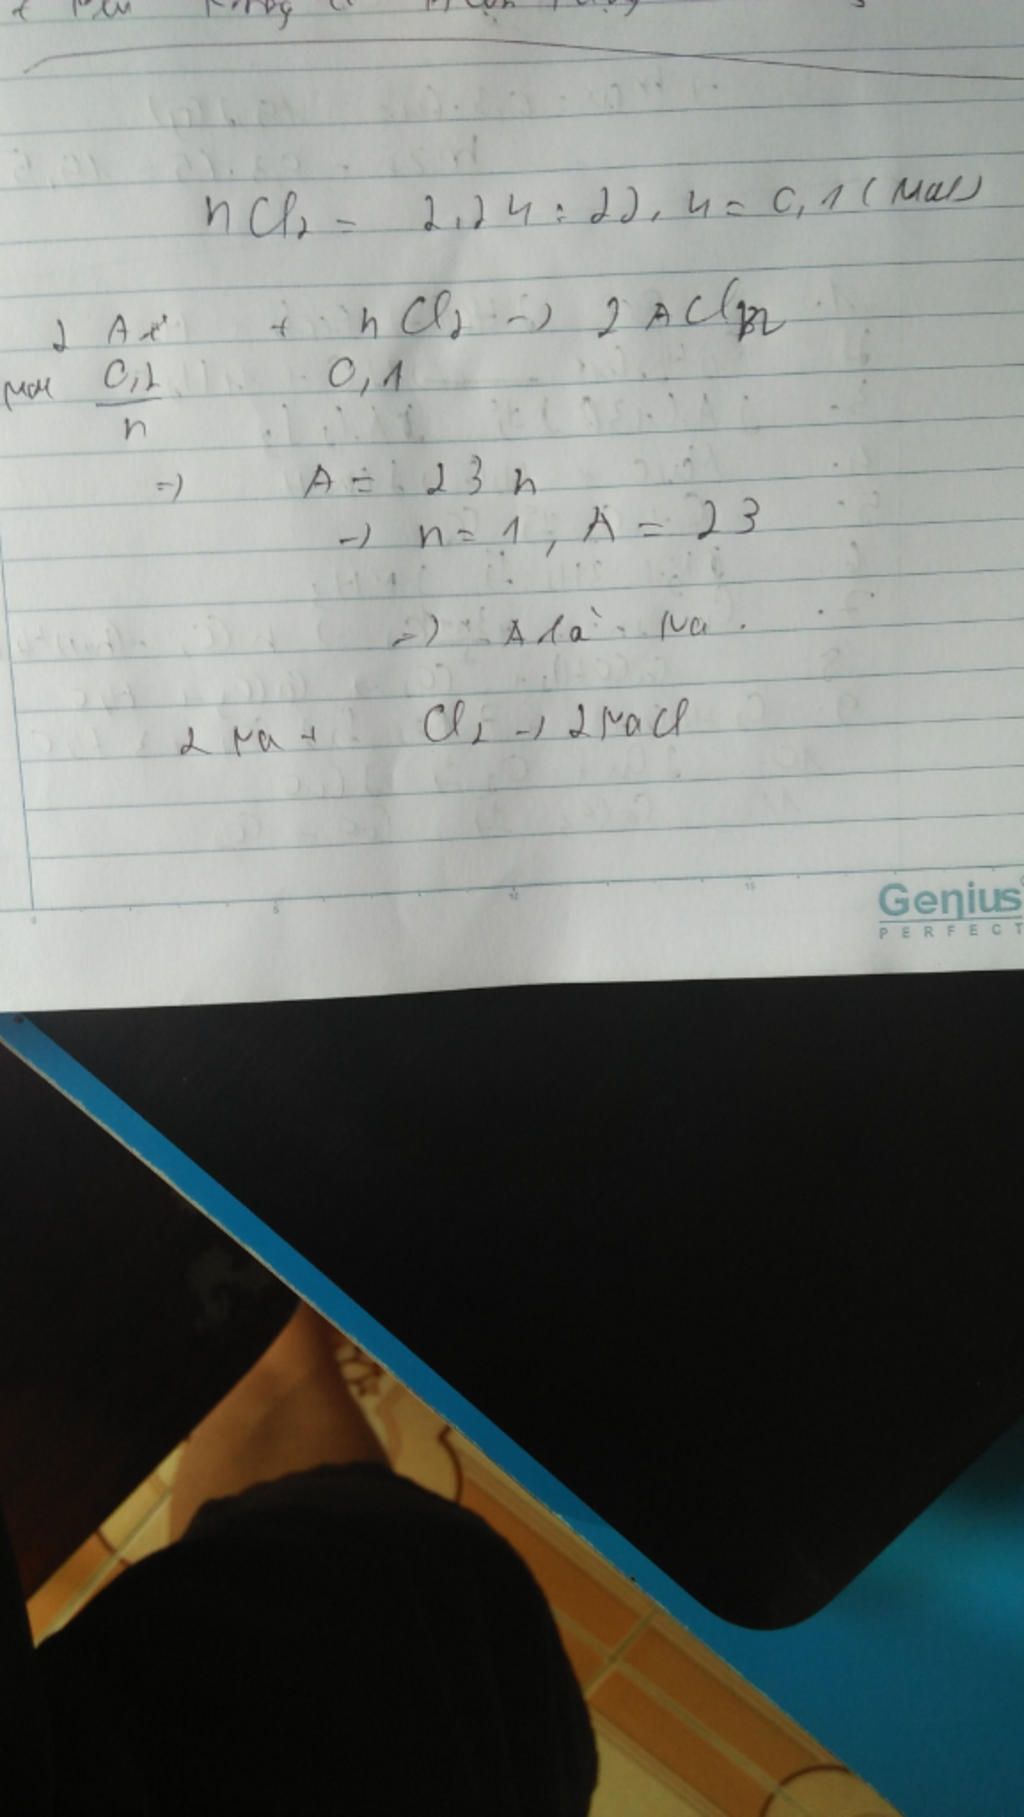 nCl2 = 2,24 : 22,4 = 0,1 (mol)
2 A + nCl2 -> 2 ACln
mol 0,2/n 0,1
=> A = 23 n
-> n = 1, A = 23
=> A là Na.
2 Na + Cl2 -> 2NaCl
0 5 10 15
Genius
PERFECT